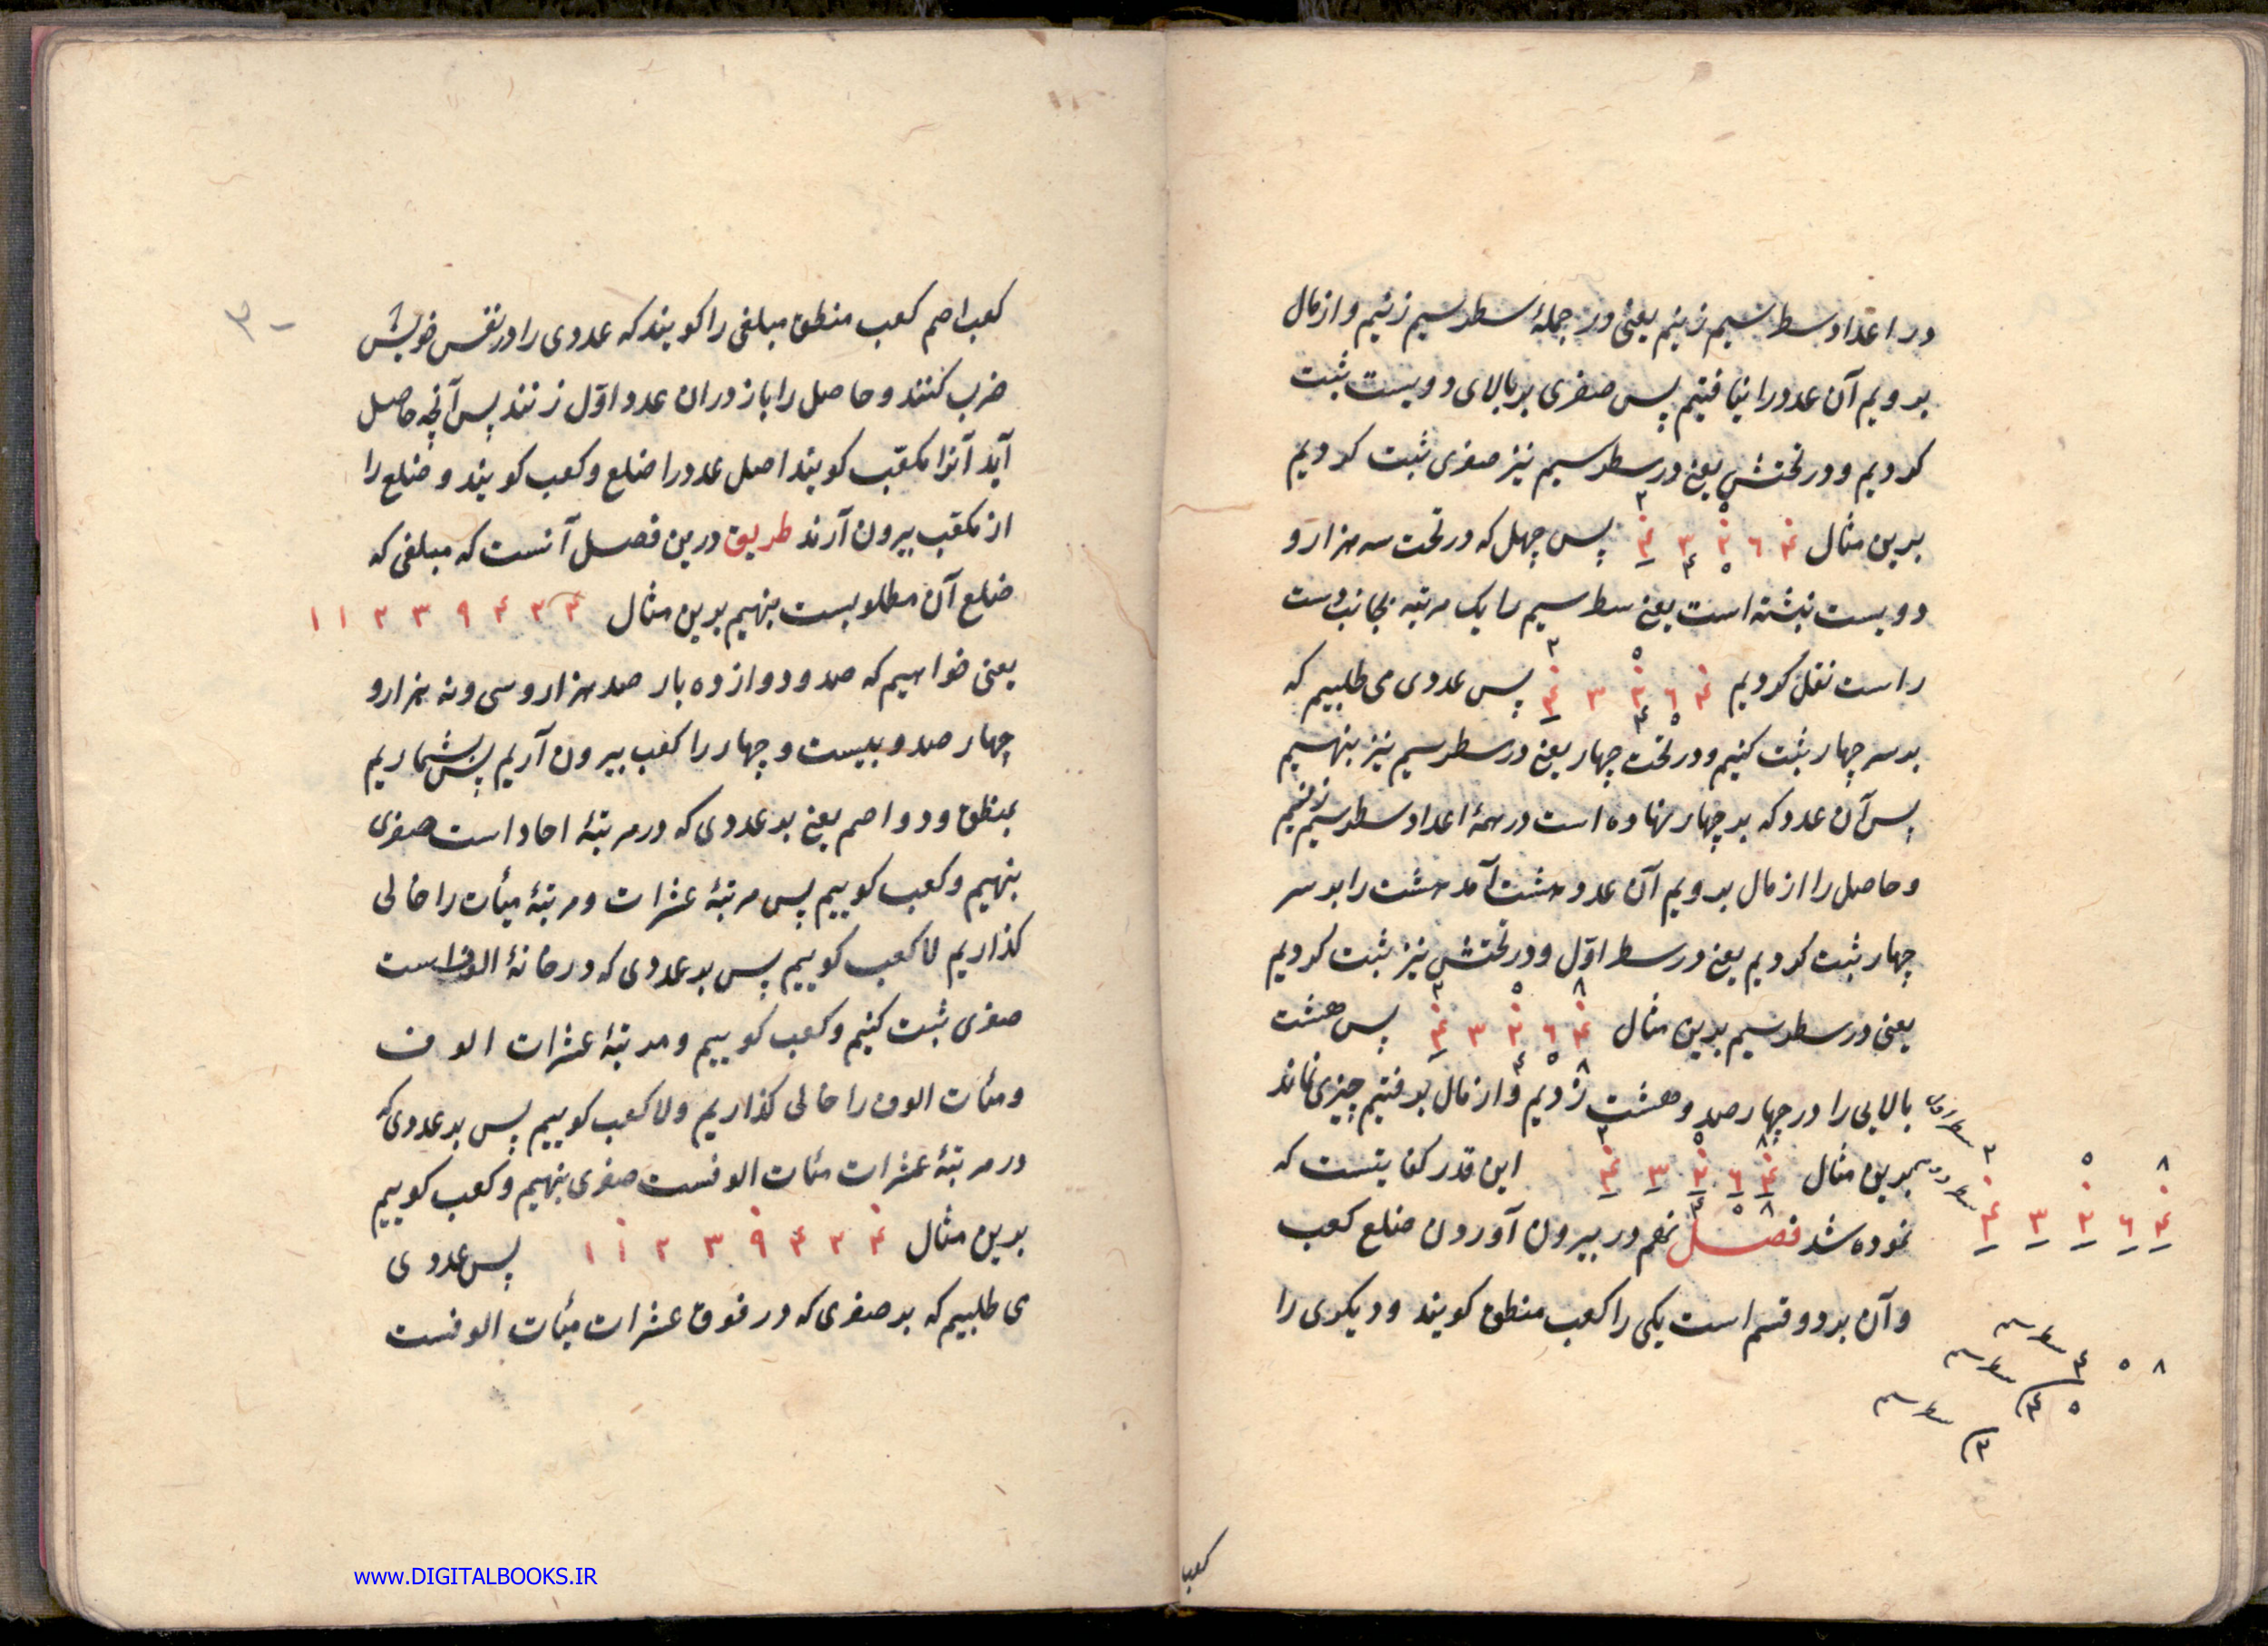 در اعداد سطر سیم زنیم یعنی در جملهٔ سطر سیم زنیم و از مال
برویم آن عدد را نیافتیم پس صفری بر بالای دویست ثبت
کردیم و در تحتش یعنی در سطر سیم نیز صفری ثبت کردیم
برین مثال ۴ ۳ ۲ ۶ ۴ پس چهل که در تحت سه هزار و
دویست نبشته است یعنی سطر سیم را یک مرتبه بجانب دست
راست نقل کردیم ۴ ۳ ۲ ۶ ۴ پس عددی می طلبیم که
بر سر چهار ثبت کنیم و در تحت چهار یعنی در سطر سیم نیز بنهیم
پس آن عدد که بر چهار نهاده است در همهٔ اعداد سطر سیم زنیم
و حاصل را از مال برویم آن عدد هشت آمد هشت را بر سر
چهار ثبت کردیم یعنی در سطر اوّل و در تحتش نیز ثبت کردیم
یعنی در سطر سیم بدین مثال ۴ ۳ ۲ ۶ ۴ پس هشت
بالایی را در چهار صد و هشت زدیم و از مال برفتیم چیزی نماند
برین مثال ۴ ۳ ۲ ۶ ۴ این قدر کفایتست که
نموده شد فصل نهم در بیرون آوردن ضلع کعب
و آن بر دو قسم است یکی را کعب منطق کویند و دیکری را
۲ ۵ ۸
۴ ۳ ۲ ۶ ۴
سطر سیم ۴ ۵ ۸
سطر سیم ۴ ۵
سطر سیم
کعب
کعب اصم کعب منطق مبلغی را کویند که عددی را در نفس خویش
ضرب کنند و حاصل را باز در ان عدد اوّل زنند پس آنچه حاصل
آید آنرا مکعّب کویند اصل عدد را ضلع و کعب کویند و ضلع را
از مکعّب بیرون آرند طریق درین فصل آنست که مبلغی که
ضلع آن مطلوبست بنهیم برین مثال ۱ ۱ ۲ ۳ ۹ ۴ ۲ ۴
یعنی خواهیم که صد و دوازده بار صد هزار و سی و نه هزار و
چهار صد و بیست و چهار را کعب بیرون آریم پس بشماریم
بمنطق و دو اصم یعنی بر عددی که در مرتبهٔ احاد است صفری
بنهیم و کعب کوییم پس مرتبهٔ عشرات و مرتبهٔ میأت را خالی
کذاریم لا کعب کوییم پس بر عددی که در خانهٔ الوف است
صفری ثبت کنیم و کعب کوییم و مرتبهٔ عشرات الوف
و مئات الوف را خالی کذاریم و لا کعب کوییم پس بر عددی که
در مرتبهٔ عشرات مئات الوفست صفری بنهیم و کعب کوییم
بدین مثال ۱ ۱ ۲ ۳ ۹ ۴ ۲ ۴ پس عددی
می طلبیم که بر صفری که در فوق عشرات میأت الوفست
www.DIGITALBOOKS.IR